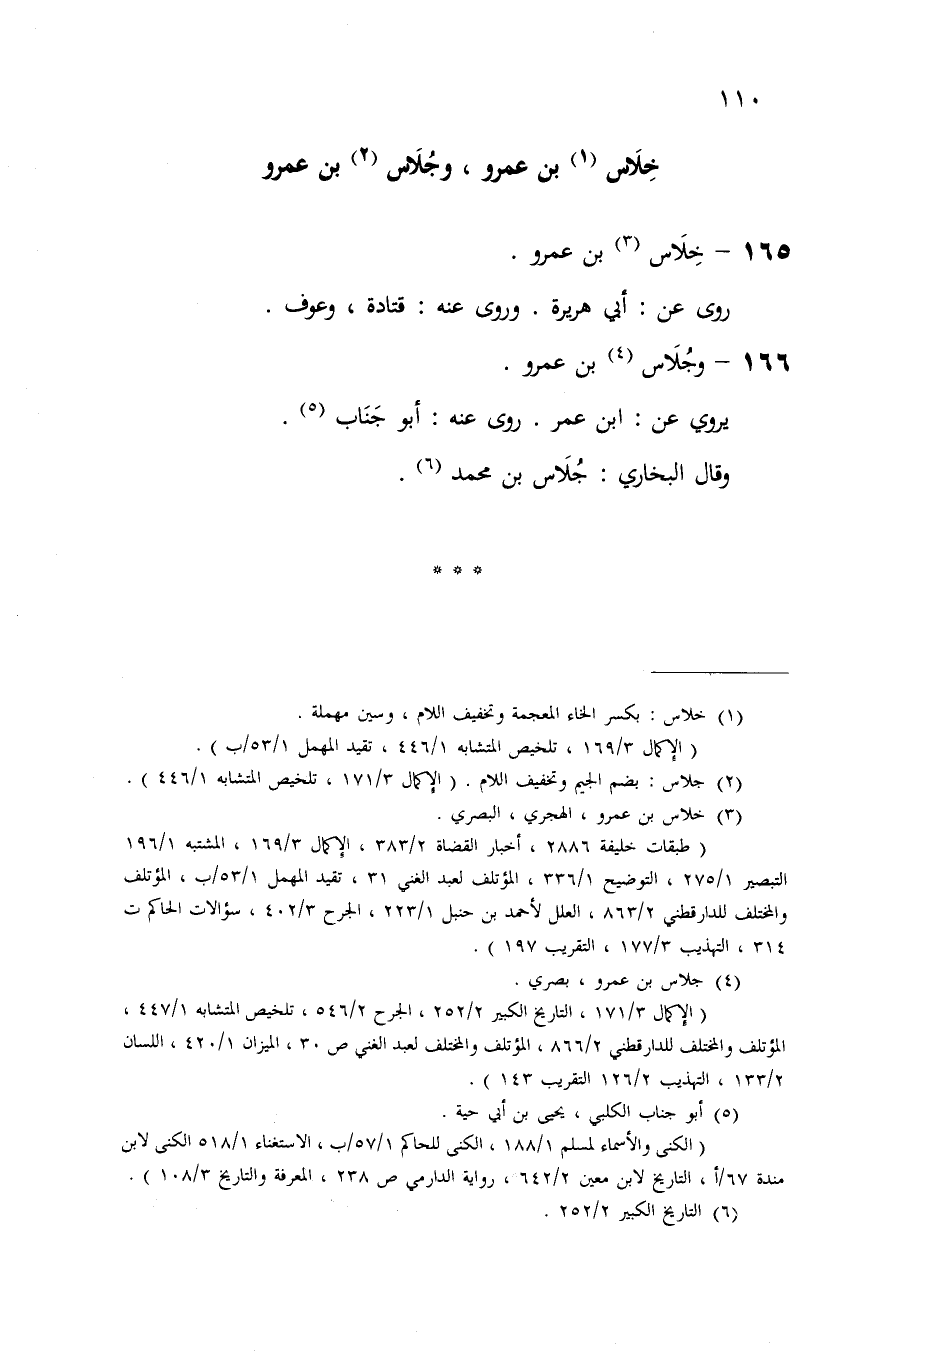 ١١٠
خِلَاس (١) بن عمرو ، وجُلَاس (٢) بن عمرو
١٦٥ - خِلَاس (٣) بن عمرو .
روى عن : أبي هريرة . وروى عنه : قتادة ، وعوف .
١٦٦ - وجُلَاس (٤) بن عمرو .
يروي عن : ابن عمر . روى عنه : أبو جَنَاب (٥) .
وقال البخاري : جُلَاس بن محمد (٦) .
* * *
(١) خلاس : بكسر الخاء المعجمة وتخفيف اللام ، وسين مهملة .
( الإكمال ١٦٩/٣ ، تلخيص المتشابه ٤٤٦/١ ، تقيد المهمل ٥٣/١/ب ) .
(٢) جلاس : بضم الجيم وتخفيف اللام . ( الإكمال ١٧١/٣ ، تلخيص المتشابه ٤٤٦/١ ) .
(٣) خلاس بن عمرو ، الهجري ، البصري .
( طبقات خليفة ٢٨٨٦ ، أخبار القضاة ٣٨٣/٢ ، الإكمال ١٦٩/٣ ، المشتبه ١٩٦/١
التبصير ٢٧٥/١ ، التوضيح ٣٣٦/١ ، المؤتلف لعبد الغني ٣١ ، تقيد المهمل ٥٣/١/ب ، المؤتلف
والمختلف للدارقطني ٨٦٣/٢ ، العلل لأحمد بن حنبل ٢٢٣/١ ، الجرح ٤٠٢/٣ ، سؤالات الحاكم ت
٣١٤ ، التهذيب ١٧٧/٣ ، التقريب ١٩٧ ) .
(٤) جلاس بن عمرو ، بصري .
( الإكمال ١٧١/٣ ، التاريخ الكبير ٢٥٢/٢ ، الجرح ٥٤٦/٢ ، تلخيص المتشابه ٤٤٧/١ ،
المؤتلف والمختلف للدارقطني ٨٦٦/٢ ، المؤتلف والمختلف لعبد الغني ص ٣٠ ، الميزان ٤٢٠/١ ، اللسان
١٣٣/٢ ، التهذيب ١٢٦/٢ التقريب ١٤٣ ) .
(٥) أبو جناب الكلبي ، يحيى بن أبي حية .
( الكنى والأسماء لمسلم ١٨٨/١ ، الكنى للحاكم ٥٧/١/ب ، الاستغناء ٥١٨/١ الكنى لابن
مندة ٦٧/أ ، التاريخ لابن معين ٦٤٢/٢ ، رواية الدارمي ص ٢٣٨ ، المعرفة والتاريخ ١٠٨/٣ ) .
(٦) التاريخ الكبير ٢٥٢/٢ .